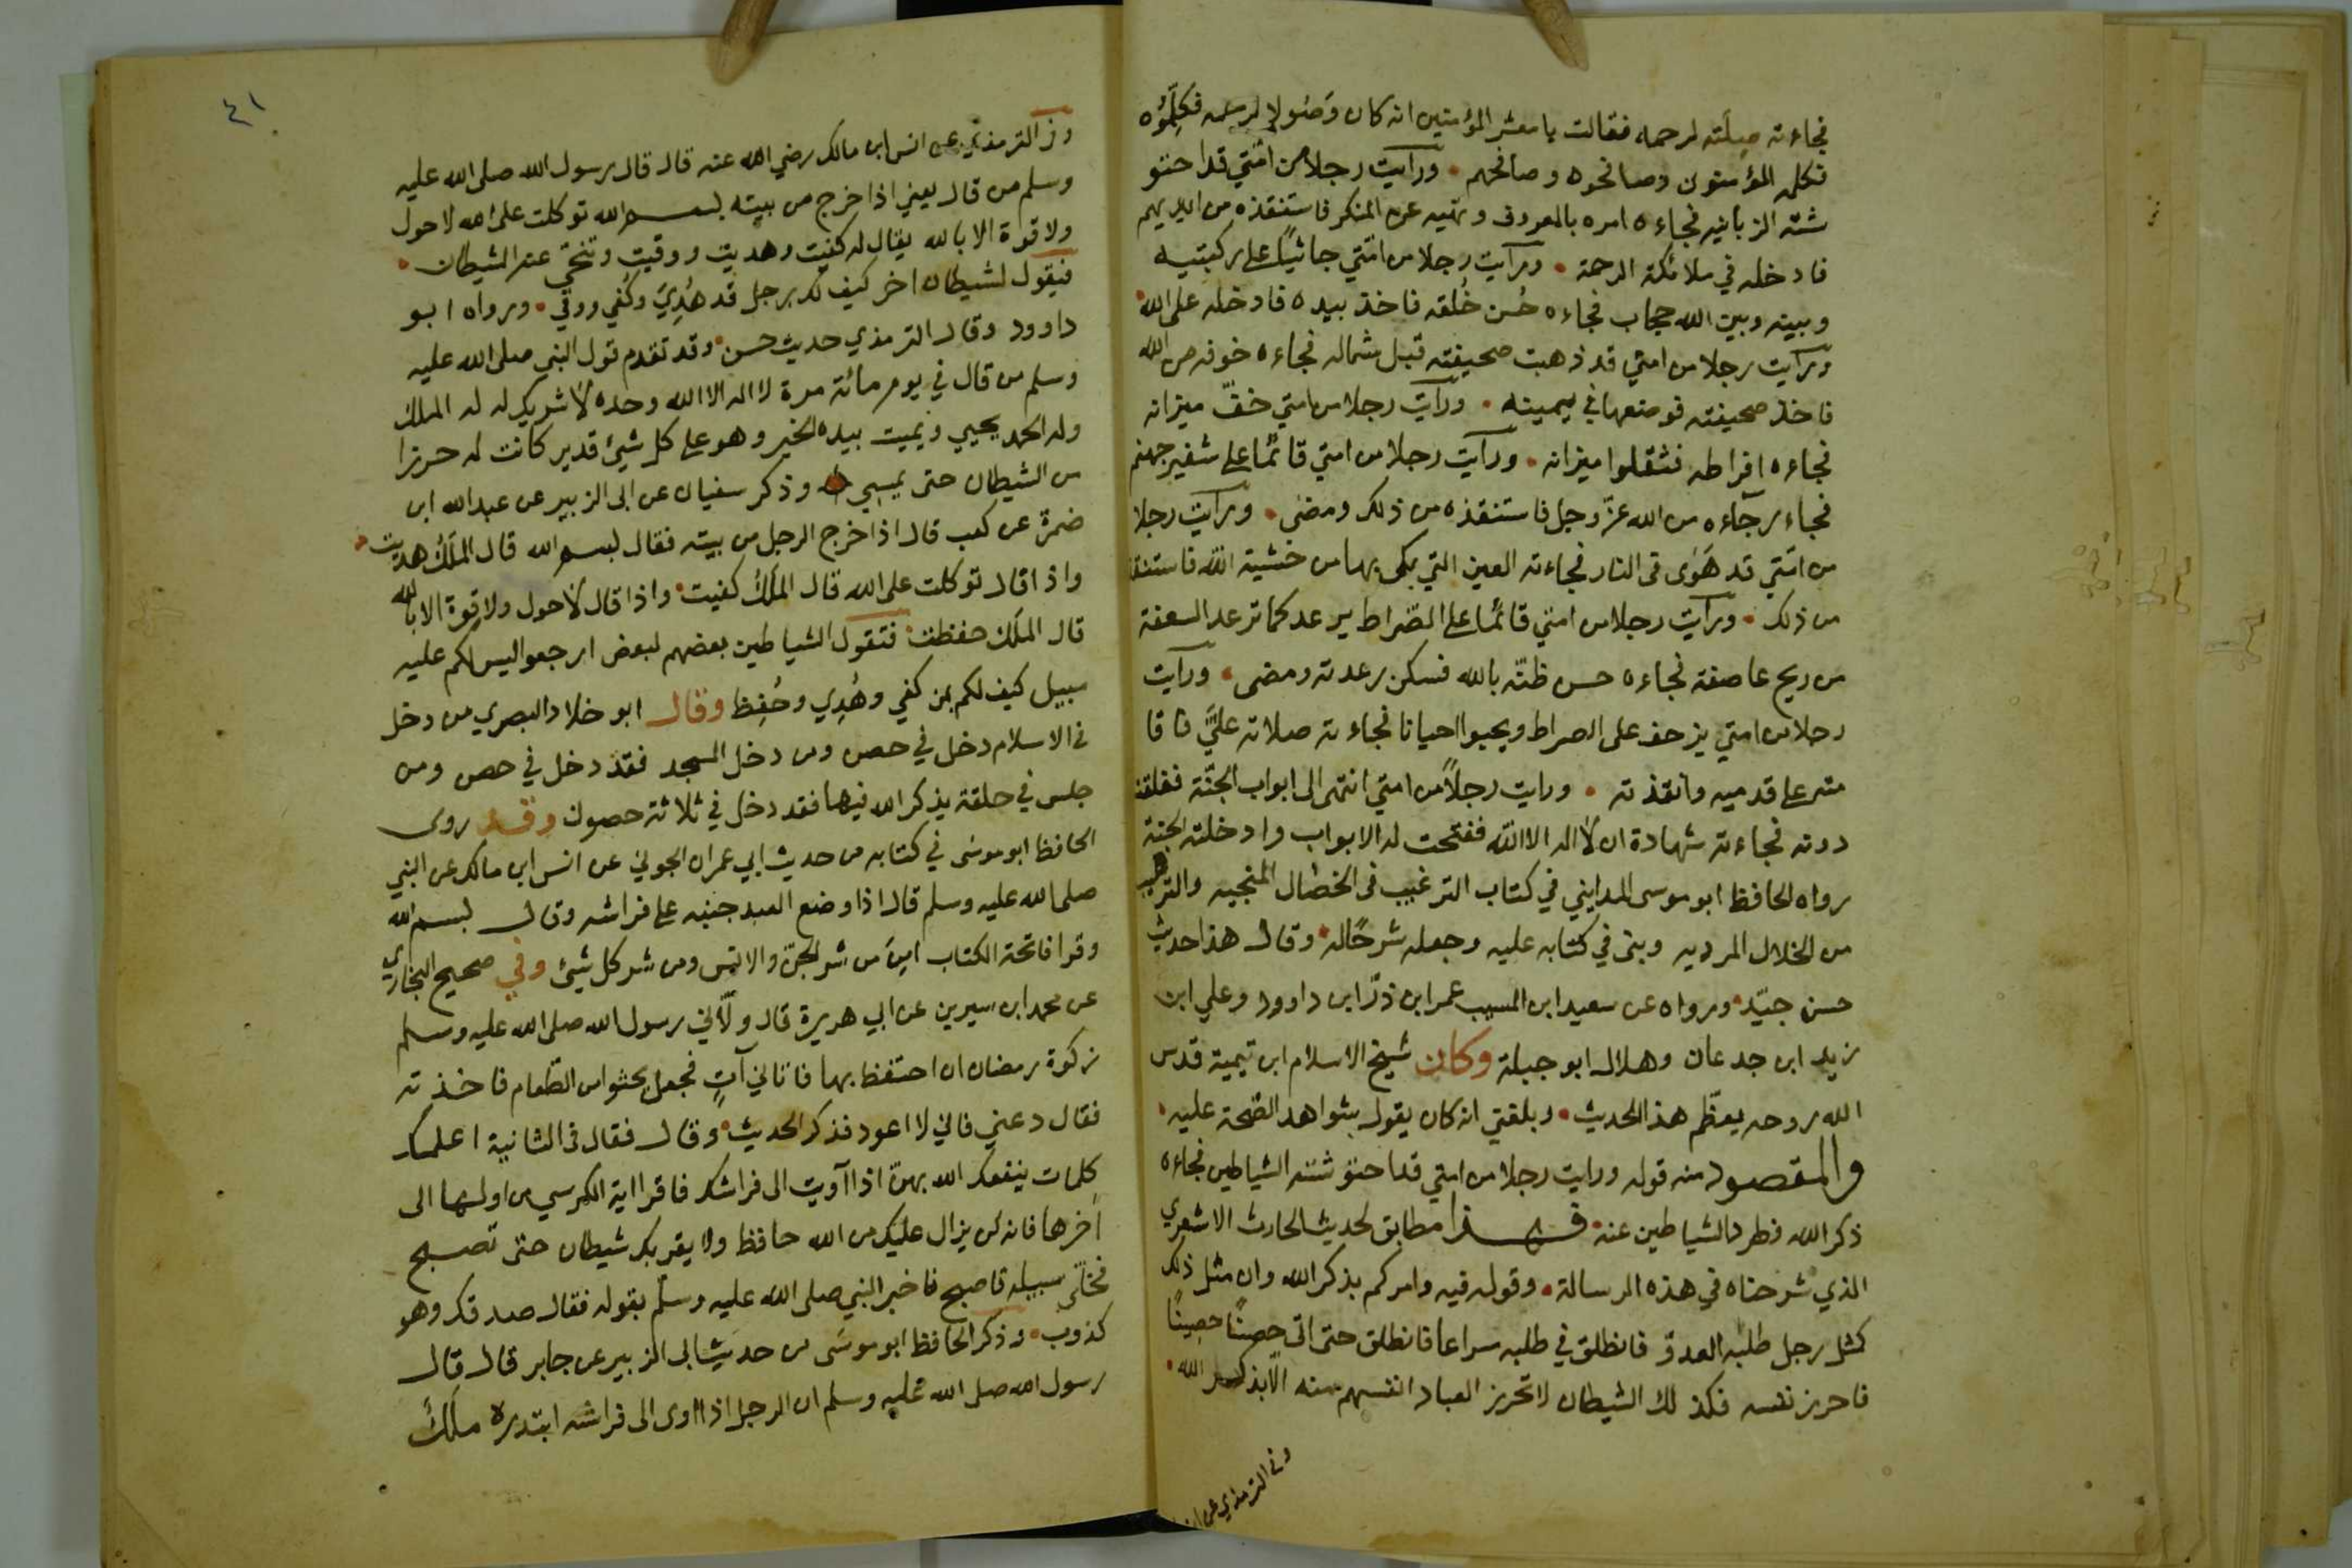 فجاءته صلته لرحمه فقالت يا معشر المؤمنين انه كان وَصُولا لرحمه فكلِّمُوُه
فكلمه المؤمنون وصافحوه وصافحهم • ورأيت رجلا من امّتي قد احتو
شته الزبانيه فجاءه امره بالمعروف ونهيه عن المنكر فاستنقذه من ايديهم
فادخله في ملائكة الرحمة • ورأيت رجلا من امّتي جاثياً على ركبتيه
وبينه وبين الله حجاب فجاءه حُسن خُلقه فاخذ بيده فادخله على الله •
ورأيت رجلا من امتي قد ذهبت صحيفته قبل شماله فجاءه خوفه من الله
فاخذ صحيفته فوضعها في يمينه • ورأيت رجلا من امتي خفّ ميزانه
فجاءه افراطه فثقلوا ميزانه • ورأيت رجلا من امتي قائمًا على شفير جهنم
فجاء رجآءه من الله عزّ وجل فاستنقذه من ذلك ومضى • ورأيت رجلا
من امّتي قد هَوٰى فى النار فجاءته العين التي بكى بها من خشية اللّه فاستنقذ
من ذلك • ورأيت رجلا من امتي قائمًا على الصّراط يرعد كما ترعد السعفة
من ريح عاصفة فجاءه حسن ظنّه بالله فسكن رعدته ومضى • ورأيت
رجلا من امتي يزحف على الصراط ويحبوا احيانا فجاءته صلاته عليَّ فاقا
مته على قدميه وانقذته • ورايت رجلاً من امتي انتهى الى ابواب الجنّة فغلقت
دونه فجاءته شهادة ان لا اله الا اللّه ففتحت له الابواب وادخلته الجنة
رواه الحافظ ابو موسى المدايني في كتاب الترغيب فى الخصال المنجيه والترهيب
من الخلال المرديه وبنى في كتابه عليه وجعله شرحًا له • وقال هذا حديث
حسن جيّد • ورواه عن سعيد ابن المسيب عمر ابن ذرّ ابن داوود وعلي ابن
زيد ابن جدعان وهلال ابو جبلة وكان شيخ الاسلام ابن تيمية قدس
الله روحه يعظّم هذا الحديث • وبلغني انه كان يقول بشواهد الصّحة عليه •
والمقصود منه قوله ورايت رجلا من امتي قد احتوشته الشياطين فجاءه
ذكر الله فطرد الشياطين عنه • فهـــذا مطابق لحديث الحارث الاشعري
الذي شرحناه في هذه الرسالة • وقوله فيه وامركم بذكر الله وان مثل ذلك
كمثل رجل طلبه العدوّ فانطلق في طلبه سراعا فانطلق حتى اتى حِصنًا حصينًا
فاحرز نفسه فكذلك الشيطان لا تحرز العباد انفسهم منه الّا بذكر الله •
وفي الترمذي عن
٤١
وفى الترمذي عن انس ابن مالك رضي الله عنه قال قال رسول الله صلى الله عليه
وسلم من قال يعني اذا خرج من بيته بسم الله توكلت على الله لا حول
ولا قوة الا بالله يقال له كفيت وهديت ووقيت وتنحّي عنه الشيطان •
فيقول لشيطان اخر كيف لك برجل قد هُدِيَ وكُفي ووقي • ورواه ابو
داوود وقال الترمذي حديث حسن • وقد تقدم قول النبي صلى الله عليه
وسلم من قال في يوم مائة مرة لا اله الا الله وحده لا شريك له له الملك
وله الحمد يحيي ويميت بيده الخير وهو على كل شيئ قدير كانت له حرزا
من الشيطان حتى يمسي وذكر سفيان عن ابى الزبير عن عبد الله ابن
ضمرة عن كعب قال اذا خرج الرجل من بيته فقال بسم الله قال الملَكُ هديت •
واذا قال توكلت على الله قال الملَكُ كفيت • واذا قال لا حول ولا قوة الا بالله
قال الملَك حفظت • فتقول الشياطين بعضهم لبعض ارجعوا ليس لكم عليه
سبيل كيف لكم بمن كفي وهُدِي وحُفِظ وقال ابو خلاد البصري من دخل
فى الاسلام دخل في حصن ومن دخل المسجد فقد دخل في حصن ومن
جلس في حلقة يذكر الله فيها فقد دخل في ثلاثة حصون وقد روى
الحافظ ابو موسٰى في كتابه من حديث ابي عمران الجوني عن انس ابن مالك عن النبي
صلى الله عليه وسلم قال اذا وضع العبد جنبه على فراشه وقال بسم الله
وقرا فاتحة الكتاب امِنَ من شر الجنّ والانس ومن شر كل شيئ وفي صحيح البخاري
عن محمد ابن سيرين عن ابي هريرة قال ولّاني رسول الله صلى الله عليه وسلم
زكوة رمضان ان احتفظ بها فاتاني آتٍ فجعل يحثوا من الطّعام فاخذته
فقال دعني فاني لا اعود فذكر الحديث • وقال فقال فى الثانية اعلمك
كلمات ينفعك الله بهنّ اذا آويت الى فراشك فاقرا اية الكرسي من اولها الى
آخرها فانه لن يزال عليك من الله حافظ ولا يقربك شيطان حتّى تصبح
فخلّى سبيله فاصبح فاخبر النبي صلى الله عليه وسلّم بقوله فقال صدقك وهو
كذوب • وذكر الحافظ ابو موسَى من حديث ابى الزبير عن جابر قال قال
رسول الله صلى الله عليه وسلم ان الرجل اذا اوى الى فراشه ابتدره ملَكٌ